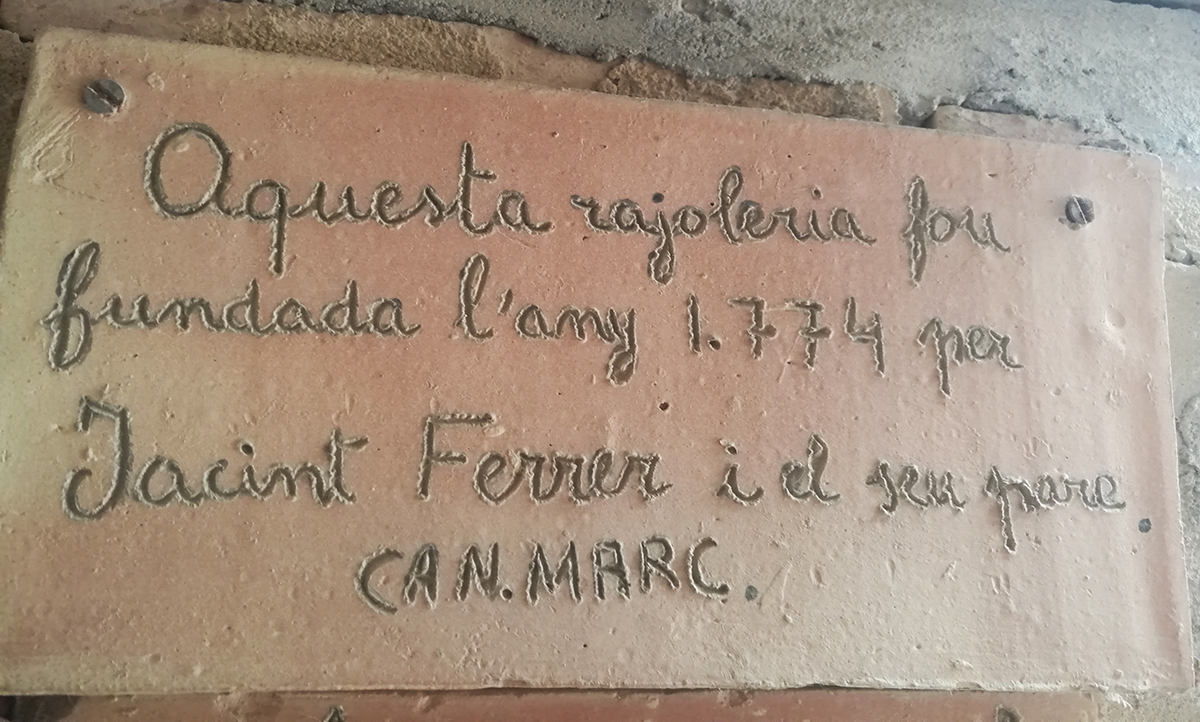 Aquesta rajoleria fou
fundada l'any 1.774 per
Jacint Ferrer i el seu pare.
CAN.MARC.